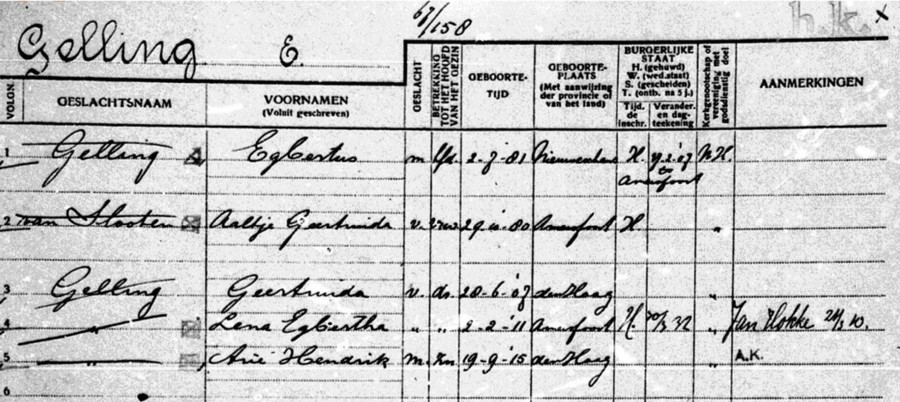 67/158
h.k. x
Gelling E
VOLGN. GESLACHTSNAAM VOORNAMEN (Voluit geschreven) GESLACHT BETREKKING TOT HET HOOFD VAN HET GEZIN GEBOORTE-TIJD GEBOORTE-PLAATS (Met aanwijzing der provincie of van het land) BURGERLIJKE STAAT H. (gehuwd) W. (wed.staat) S. (gescheiden) T. (ontb. na 5 j.) Tijd. de inschr. Verander. en dag-teekening Kerkgenootschap of vereeniging met godsdienstig doel AANMERKINGEN
1 Gelling Egbertus m hfd. 2-7-81 H. 2.'07 NH.
te Amersfoort
2 van Slooten Aaltje Geertruida v. vrw. 29-10-80 Amersfoort H „
3 Gelling Geertruida v. dr. 28-6-'07 den Haag „
4 „ Lena Egbertha „ „ 2-2-'11 Amersfoort H. 30/3 32 „ Jan Hokke 24/3 10.
5 „ Arie Hendrik m. zn 19-9-'15 den Haag „ A.K.
6